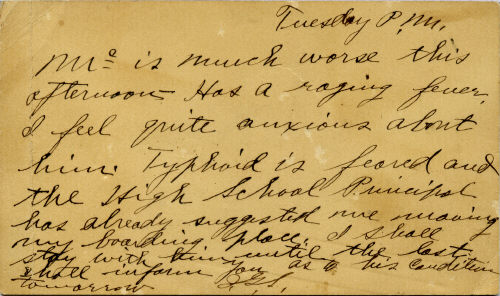 Tuesday P.M.
Mc is much worse this
afternoon Has a raging fever,
I feel quite anxious about
him. Typhoid is feared and
the High School Principal
has already suggested me moving
my boarding place. I shall
stay with him until the last.
shall inform you as to his condition
tomorrow